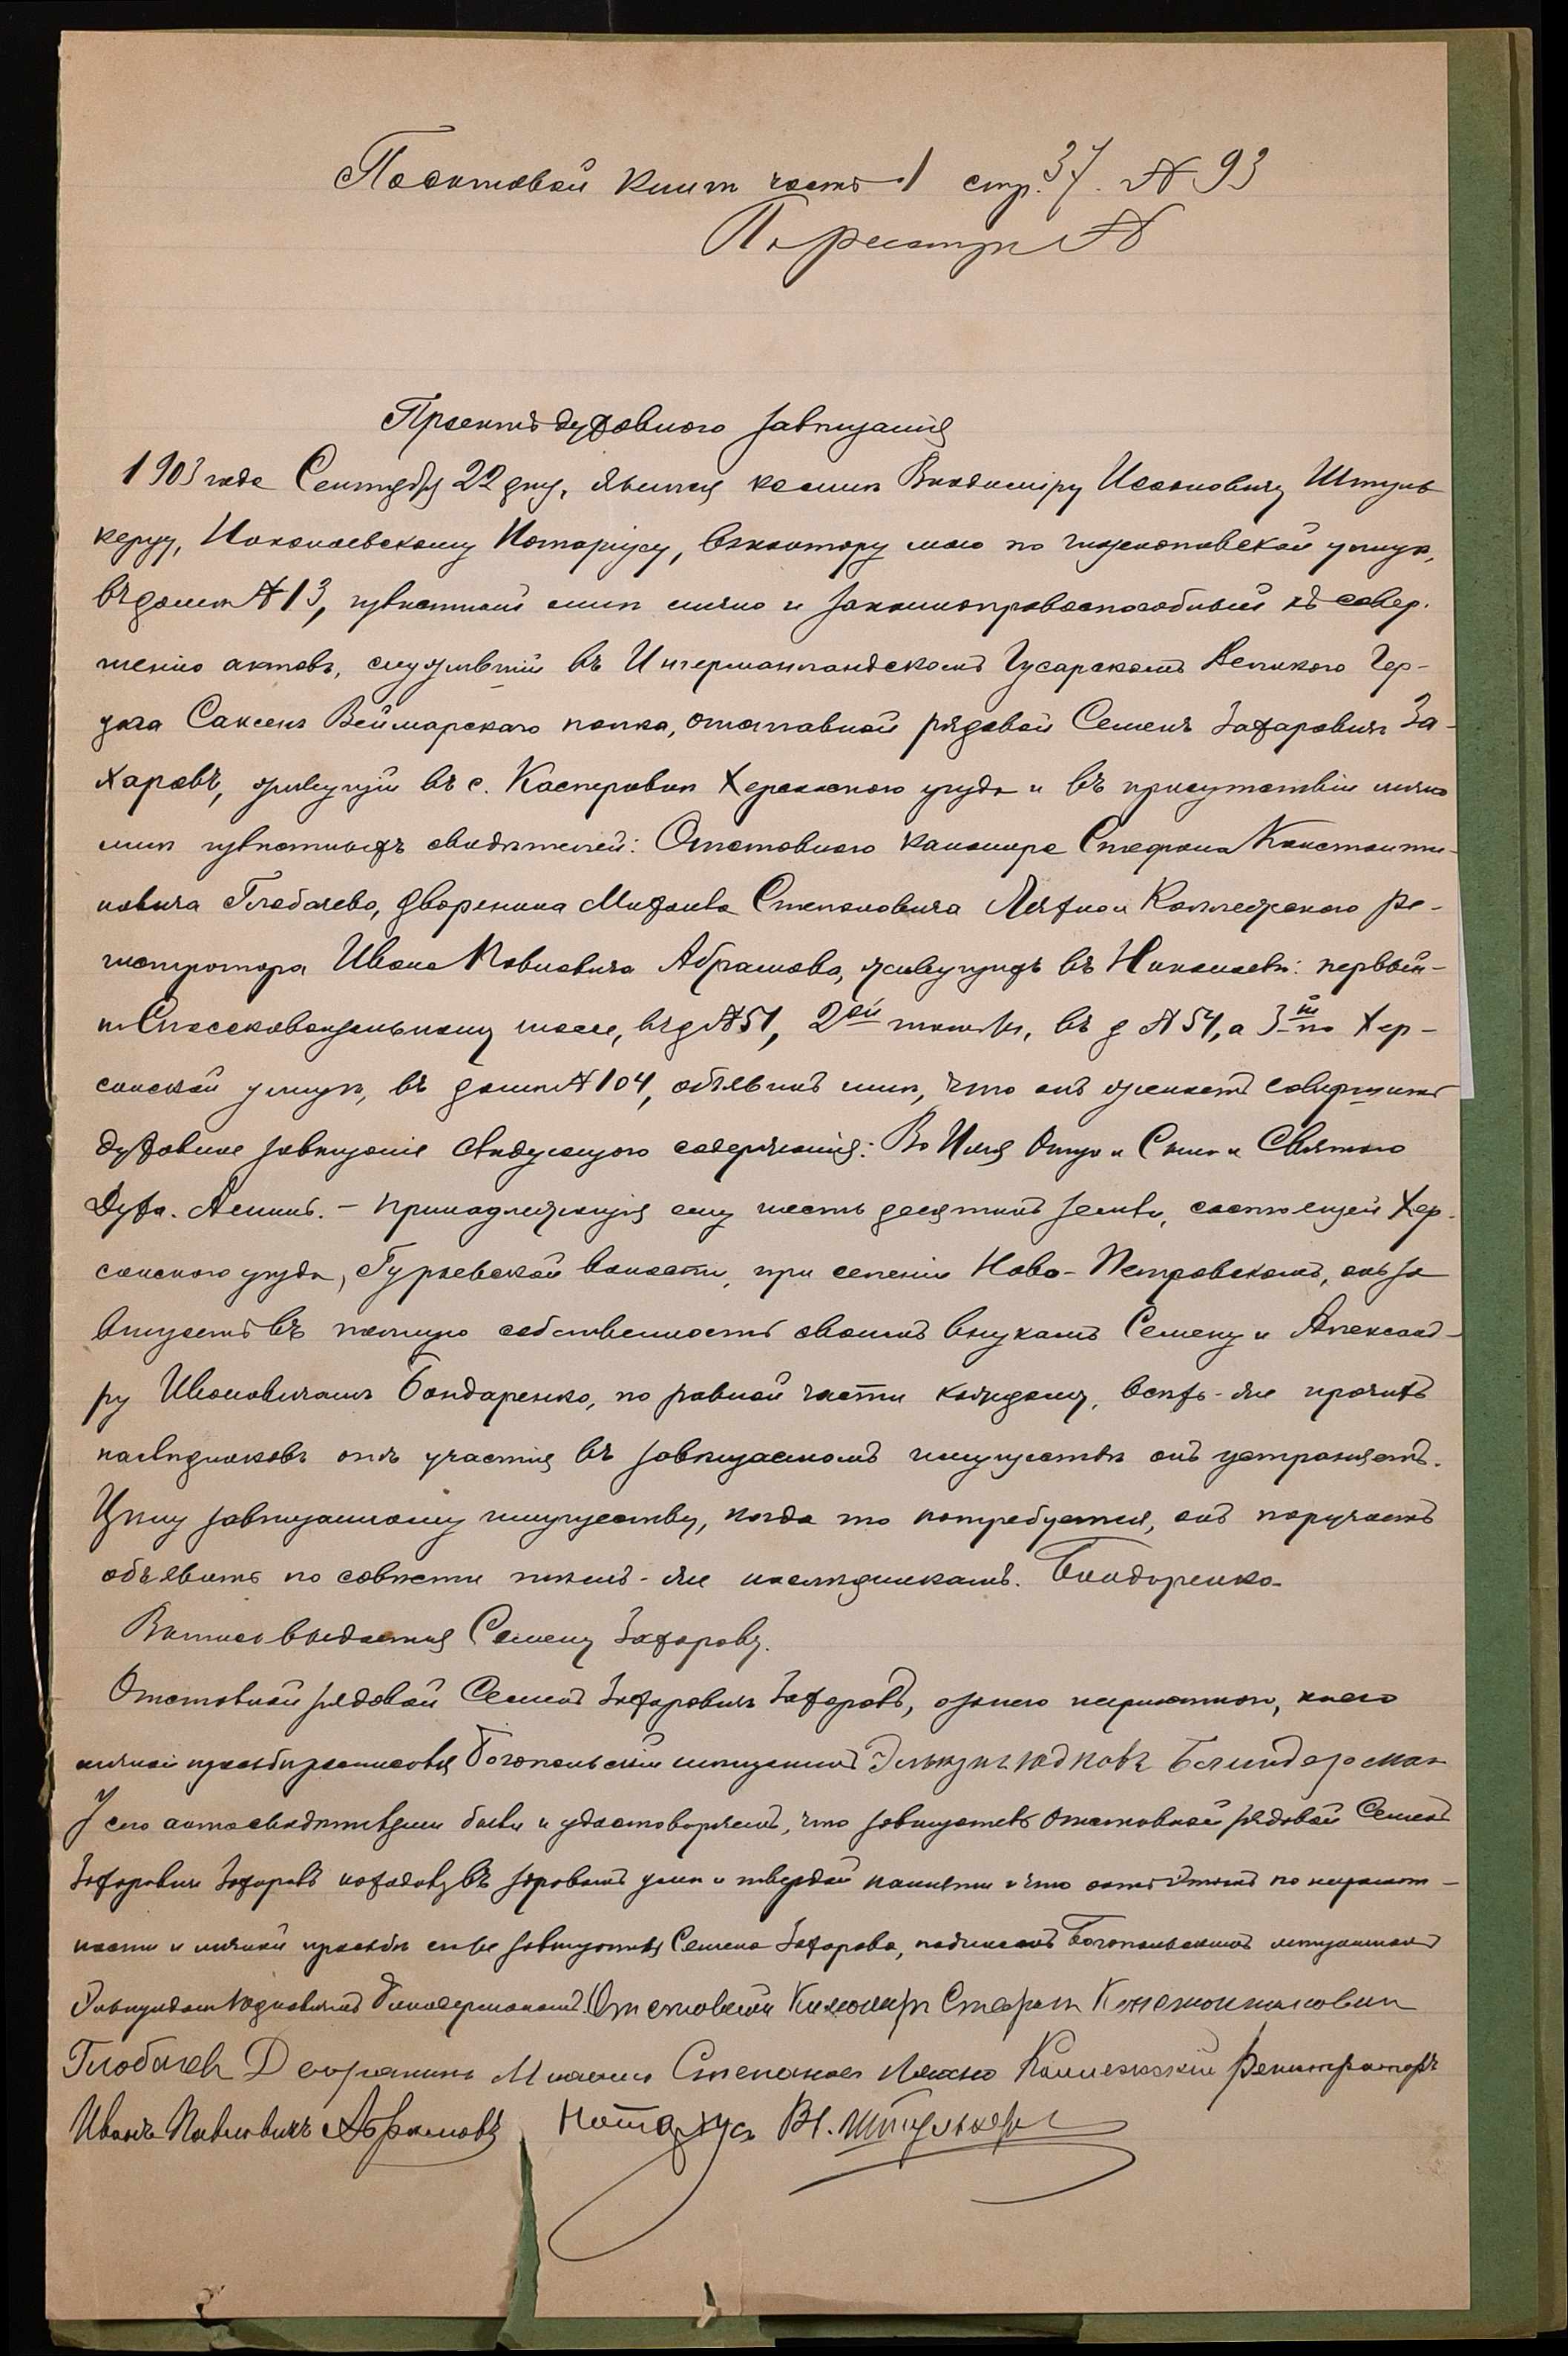 По актовой книге часть 1 стр. 37. № 93
По реестру №
Проектъ духовнаго завѣщанія
1903 года Сентября 22 дня, явился ко мнѣ Владиміру Исаковичу Штуль-
керу, Николаевскому Нотаріусу, въ контору мою по улицѣ,
въ домѣ № 13, извѣстный мнѣ лично и законноправоспособный къ совер-
шенію актовъ, служившій въ Ингерманландскомъ Гусарскомъ Великаго Гер-
цога Саксенъ Веймарскаго полка, отставной рядовой Семенъ Захаровичъ За-
харовъ, живущій въ с. Касперовкѣ Херсонскаго уѣзда и въ присутствіи лично
мнѣ извѣстныхъ свидѣтелей: Отставного канонира Стефана Константи-
новича Глобачева, дворянина Михаила Степановича Ляхно и Коллежскаго Ре-
гистратора Ивана Павловича Абрамова, живущихъ въ Николаевѣ: первый-
по Спасскому шоссе, въ д № 51, 2ой тамъ же, въ д № 54, а 3й по Хер-
сонской улицѣ, въ домѣ № 104, объявилъ мнѣ, что онъ желаетъ совершить
духовное завѣщаніе слѣдующаго содержанія: Во Имя Отца и Сына и Святаго
Духа. Аминь. – Принадлежащія ему шесть десятинъ земли, состоящей Хер-
сонскаго уѣзда, Гурьевской волости, при селеніи Ново-Петровскомъ, онъ за
вѣщаетъ въ полную собственность своимъ внукамъ Семену и Александ-
ру Ивановичамъ Бондаренко, по равной части каждому, всѣхъ-же прочихъ
наслѣдниковъ отъ участія въ завѣщаемомъ имуществѣ онъ устраняетъ.
Цѣну завѣщанному имуществу, когда то потребуется, онъ поручаетъ
объявить по совѣсти тѣмъ-же наслѣдникамъ. Бондаренко.
Выпись выдается Семену Захарову.
Отставной рядовой Семенъ Захаровичъ Захаровъ, а за него неграмотнаго, по его
личной просьбѣ росписался Богопольскій мѣщанинъ Юдковъ Блиндерманъ
У сего акта свидѣтелями были и удостовѣряемъ, что завѣщатель Отставной рядовой Семенъ
Захаровичъ Захаровъ находясь въ здравомъ умѣ и твердой памяти и что актъ этотъ по неграмот-
ности и личной просьбѣ завѣщателя Семена Захарова, подписанъ Богопольскимъ мѣщаниномъ
Юдковичемъ Блиндерманомъ. Отставной Канониръ Стефанъ Константиновичъ
Глобачевъ Дворянинъ Михаилъ Степановъ Ляхно Коллежскій Регистраторъ
Иванъ Павловичъ Абрамовъ Нотаріусъ Вл. Штулькеръ